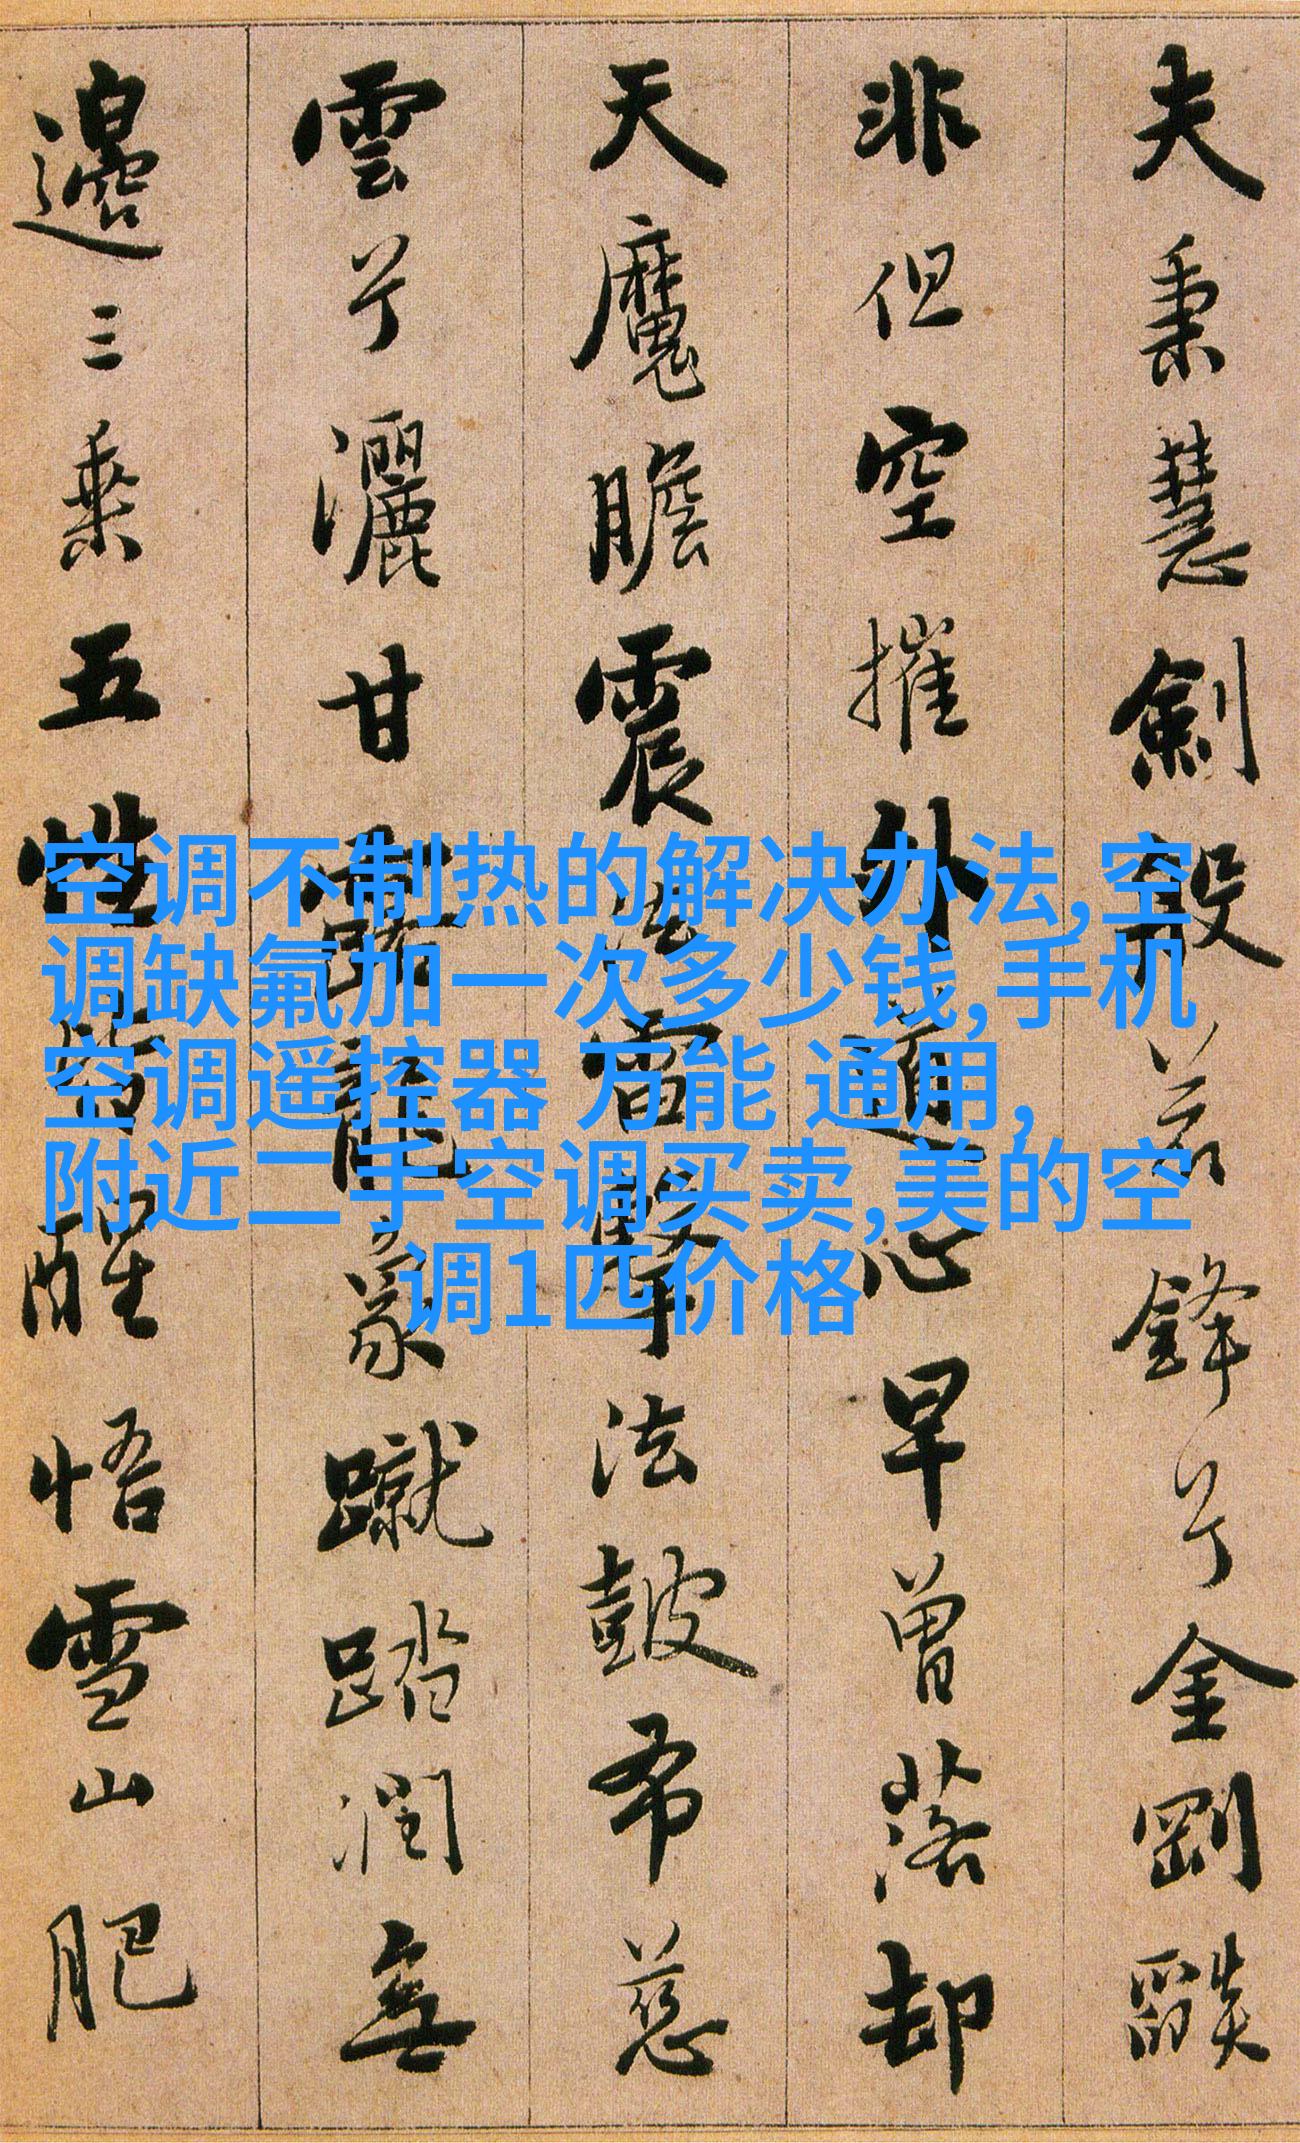 夫秉慧劍般若鋒兮金剛燄
非但空摧外道心早曾落却
天魔膽震法雷擊法皷布慈
雲兮灑甘露龍象蹴踏潤無
邊三乘五性皆醒悟雪山肥
空调不制热的解决办法,空
调缺氟加一次多少钱,手机
空调遥控器 万能 通用,
附近二手空调买卖,美的空
调1匹价格